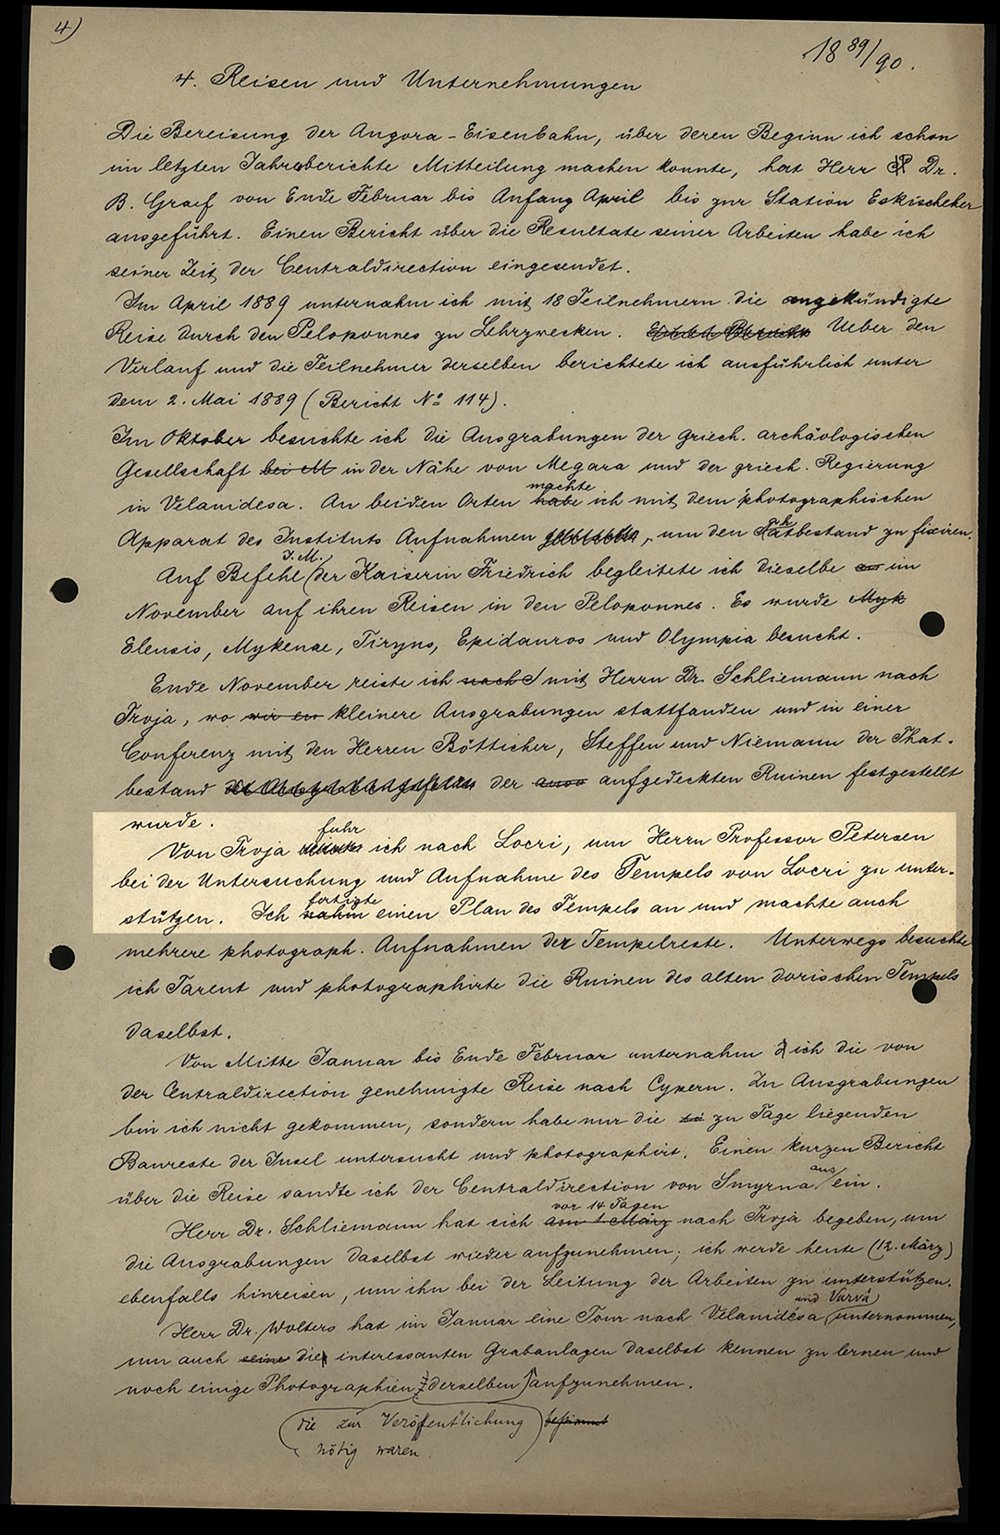 4)
18 89/90.
4. Reisen und Unternehmungen
Die Bereisung der Angora-Eisenbahn, über deren Beginn ich schon
im letzten Jahresberichte Mitteilung machen konnte, hat Herr Dr.
B. Graef von Ende Februar bis Anfang April bis zur Station Eskischeher
ausgeführt. Einen Bericht über die Resultate seiner Arbeiten habe ich
seiner Zeit der Centraldirection eingesendet.
Im April 1889 unternahm ich mit 18 Teilnehmern die angekündigte
Reise durch den Peloponnes zu Lehrzwecken. Ueber den
Verlauf und die Teilnehmer derselben berichtete ich ausführlich unter
dem 2. Mai 1889 (Bericht No 114).
Im Oktober besuchte ich die Ausgrabungen der griech. archäologischen
Gesellschaft bei M in der Nähe von Megara und der griech. Regierung
machte
in Velanidesa. An beiden Orten habe ich mit dem photographischen
Apparat des Instituts Aufnahmen, um den Thatbestand zu fixiren.
I. M.
Auf Befehl der Kaiserin Friedrich begleitete ich dieselbe im
November auf ihren Reisen in den Peloponnes. Es wurde Myk
Eleusis, Mykenae, Tiryns, Epidauros und Olympia besucht.
Ende November reiste ich nach S mit Herrn Dr. Schliemann nach
Troja, wo wir ein kleinere Ausgrabungen stattfanden und in einer
Conferenz mit den Herren Bötticher, Steffen und Niemann der That-
bestand der ausg aufgedeckten Ruinen festgestellt
wurde.
fuhr
Von Troja ich nach Locri, um Herrn Professor Petersen
bei der Untersuchung und Aufnahme des Tempels von Locri zu unter-
fertigte
stützen. Ich nahm einen Plan des Tempels an und machte auch
mehrere photograph. Aufnahmen der Tempelreste. Unterwegs besuchte
ich Tarent und photographirte die Ruinen des alten dorischen Tempels
daselbst.
Von Mitte Januar bis Ende Februar unternahm ich die von
der Centraldirection genehmigte Reise nach Cypern. Zu Ausgrabungen
bin ich nicht gekommen, sondern habe nur die zu Tage liegenden
Baureste der Insel untersucht und photographirt. Einen kurzen Bericht
aus
über die Reise sandte ich der Centraldirection von Smyrna ein.
vor 14 Tagen
Herr Dr. Schliemann hat sich am 1 März nach Troja begeben, um
die Ausgrabungen daselbst wieder aufzunehmen; ich werde heute (12. März)
ebenfalls hinreisen, um ihn bei der Leitung der Arbeiten zu unterstützen.
und Vurvá
Herr Dr. Wolters hat im Januar eine Tour nach Velanidésa unternommen,
um auch seine die interessanten Grabanlagen daselbst kennen zu lernen und
noch einige Photographien derselben aufzunehmen.
die zur Veröffentlichung bestimmt
nötig waren